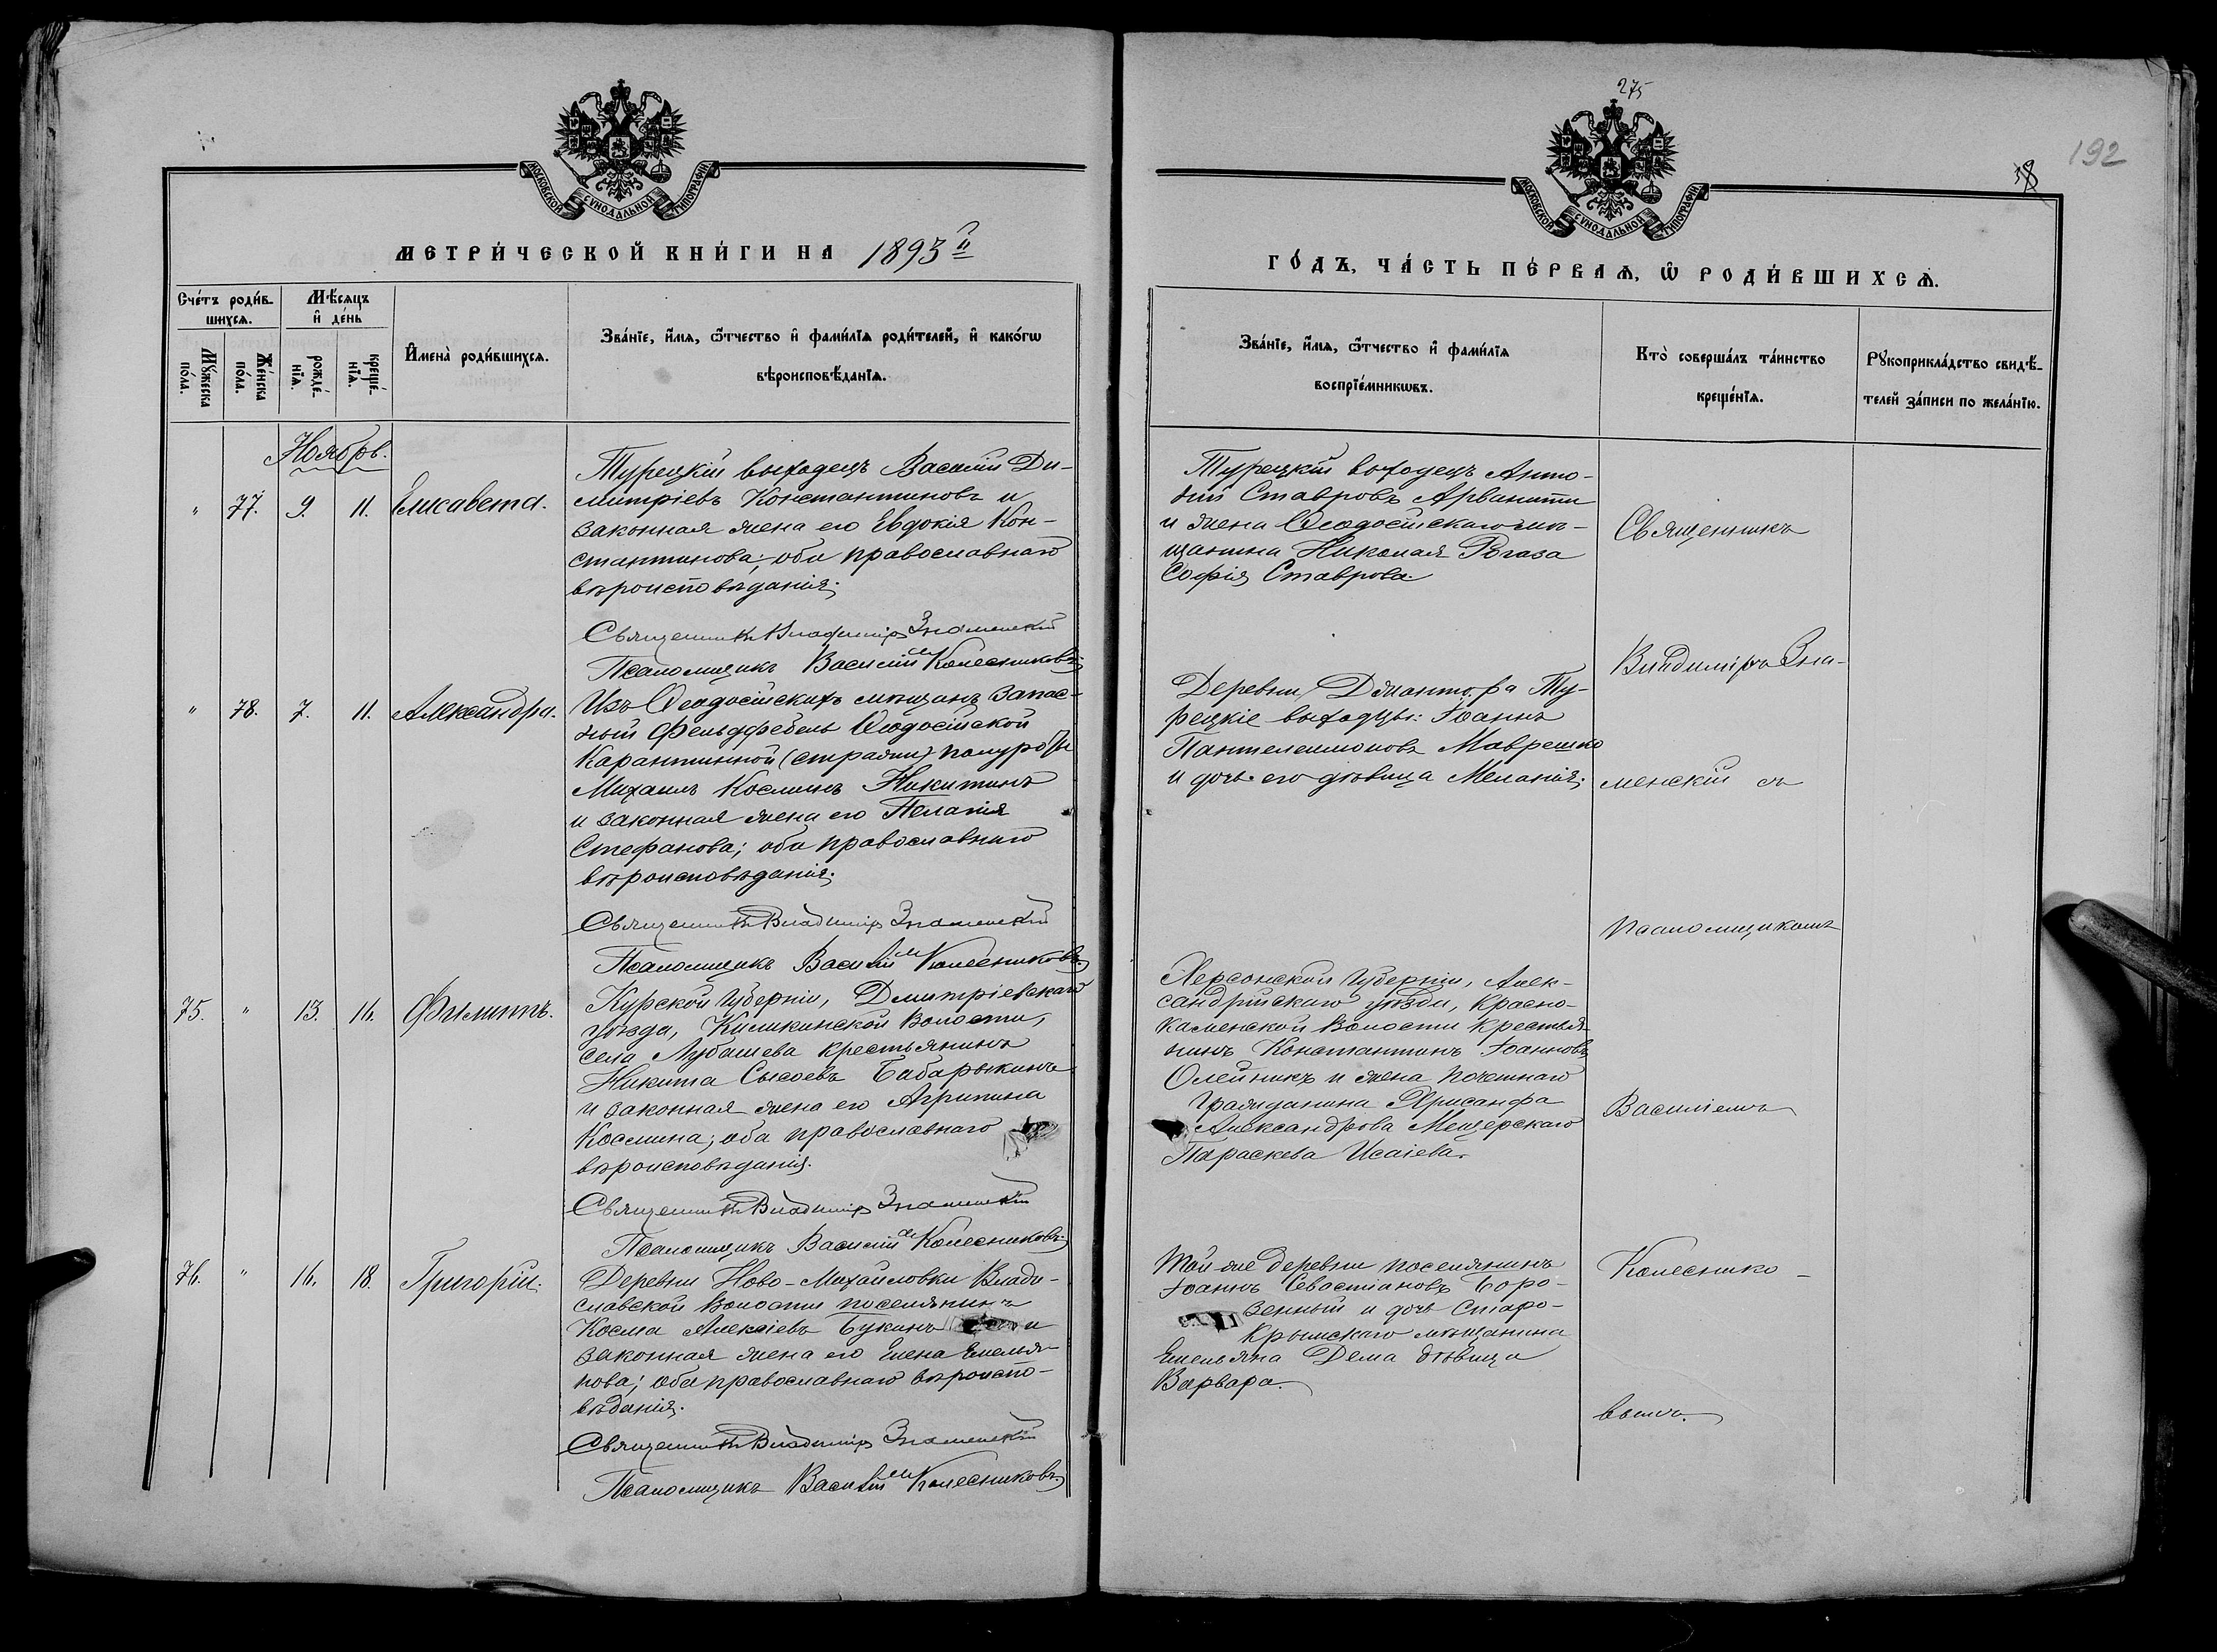 275
192
38
МОСКОВСКОЙ СѴНОДАЛЬНОЙ ТИПОГРАФІИ
МОСКОВСКОЙ СѴНОДАЛЬНОЙ ТИПОГРАФІИ
МЕТРИ́ЧЕСКОЙ КНИ́ГИ НА 1893й
ГО́ДЪ, ЧА́СТЬ ПЕ́РВАѦ, Ѡ РОДИ́ВШИХСѦ.
Сче́тъ роди́в-
шихсѧ.
Мѣ́сѧцъ
и҆ де́нь
Мꙋ́жеска
по́ла.
Же́нска
по́ла.
рожде́-
нїѧ.
креще́-
нїѧ.
И҆мена̀ роди́вшихсѧ.
Зва́нїе, и҆́мѧ, ѻ҆́тчество и҆ фами́лїѧ роди́телей, и҆ како́гѡ
вѣроисповѣ́данїѧ.
Зва́нїе, и҆́мѧ, ѻ҆́тчество и҆ фами́лїѧ
воспрїе́мникѡвъ.
Кто̀ соверша́лъ та́инство
креще́нїѧ.
Рꙋкоприкла́дство свидѣ́-
телей за́писи по жела́нїю.
Ноябрь.
" 77. 9. 11. Елисавета.
Турецкій выходецъ Василій Ди-
митріевъ Константиновъ и
законная жена его Евдокія Кон-
стантинова; оба православнаго
вѣроисповѣданія.
Священникъ Владиміръ Знаменскій
Псаломщикъ Василій Колесниковъ
Турецкій выходецъ Анто-
ній Ставровъ Арванити
и жена Ѳеодосійскаго мѣ-
щанина Николая Рогаза
Софія Ставрова.
" 78. 7. 11. Александра.
Изъ Ѳеодосійскихъ мѣщанъ запас-
ный фельдфебель Ѳеодосійской
Карантинной (стражи) полуроты
Михаилъ Косминъ Никитинъ
и законная жена его Пелагія
Стефанова; оба православнаго
вѣроисповѣданія.
Священникъ Владиміръ Знаменскій
Псаломщикъ Василій Колесниковъ.
Деревни Джантора Ту-
рецкіе выходцы: Іоаннъ
Пантелеимоновъ Маврешко
и дочь его дѣвица Меланія.
75. " 13. 16. Филиппъ.
Курской Губерніи, Дмитріевскаго
уѣзда, Киликинской Волости,
села Лубашева крестьянинъ
Никита Сысоевъ Бабарыкинъ
и законная жена его Агрипина
Космина; оба православнаго
вѣроисповѣданія.
Священникъ Владиміръ Знаменскій
Псаломщикъ Василій Колесниковъ.
Херсонской Губерніи, Алек-
сандрійскаго уѣзда, Красно-
каменской Волости крестья-
нинъ Константинъ Іоанновъ
Олейникъ и жена почетнаго
гражданина Хрисанфа
Александрова Мещерскаго
Параскева Исаіева.
76. " 16. 18. Григорій.
Деревни Ново-Михайловки Влади-
славской Волости поселянинъ
Косма Алексіевъ Букинъ и
законная жена его Елена Емелья-
нова; оба православнаго вѣроиспо-
вѣданія.
Священникъ Владиміръ Знаменскій
Псаломщикъ Василій Колесниковъ.
Той-же деревни поселянинъ
Іоаннъ Севастіановъ Боро-
венный и дочь Старо-
Крымскаго мѣщанина
Емельяна Дема дѣвица
Варвара.
Священникъ
Владиміръ Зна-
менскій съ
псаломщикомъ
Василіемъ
Колеснико-
вымъ.